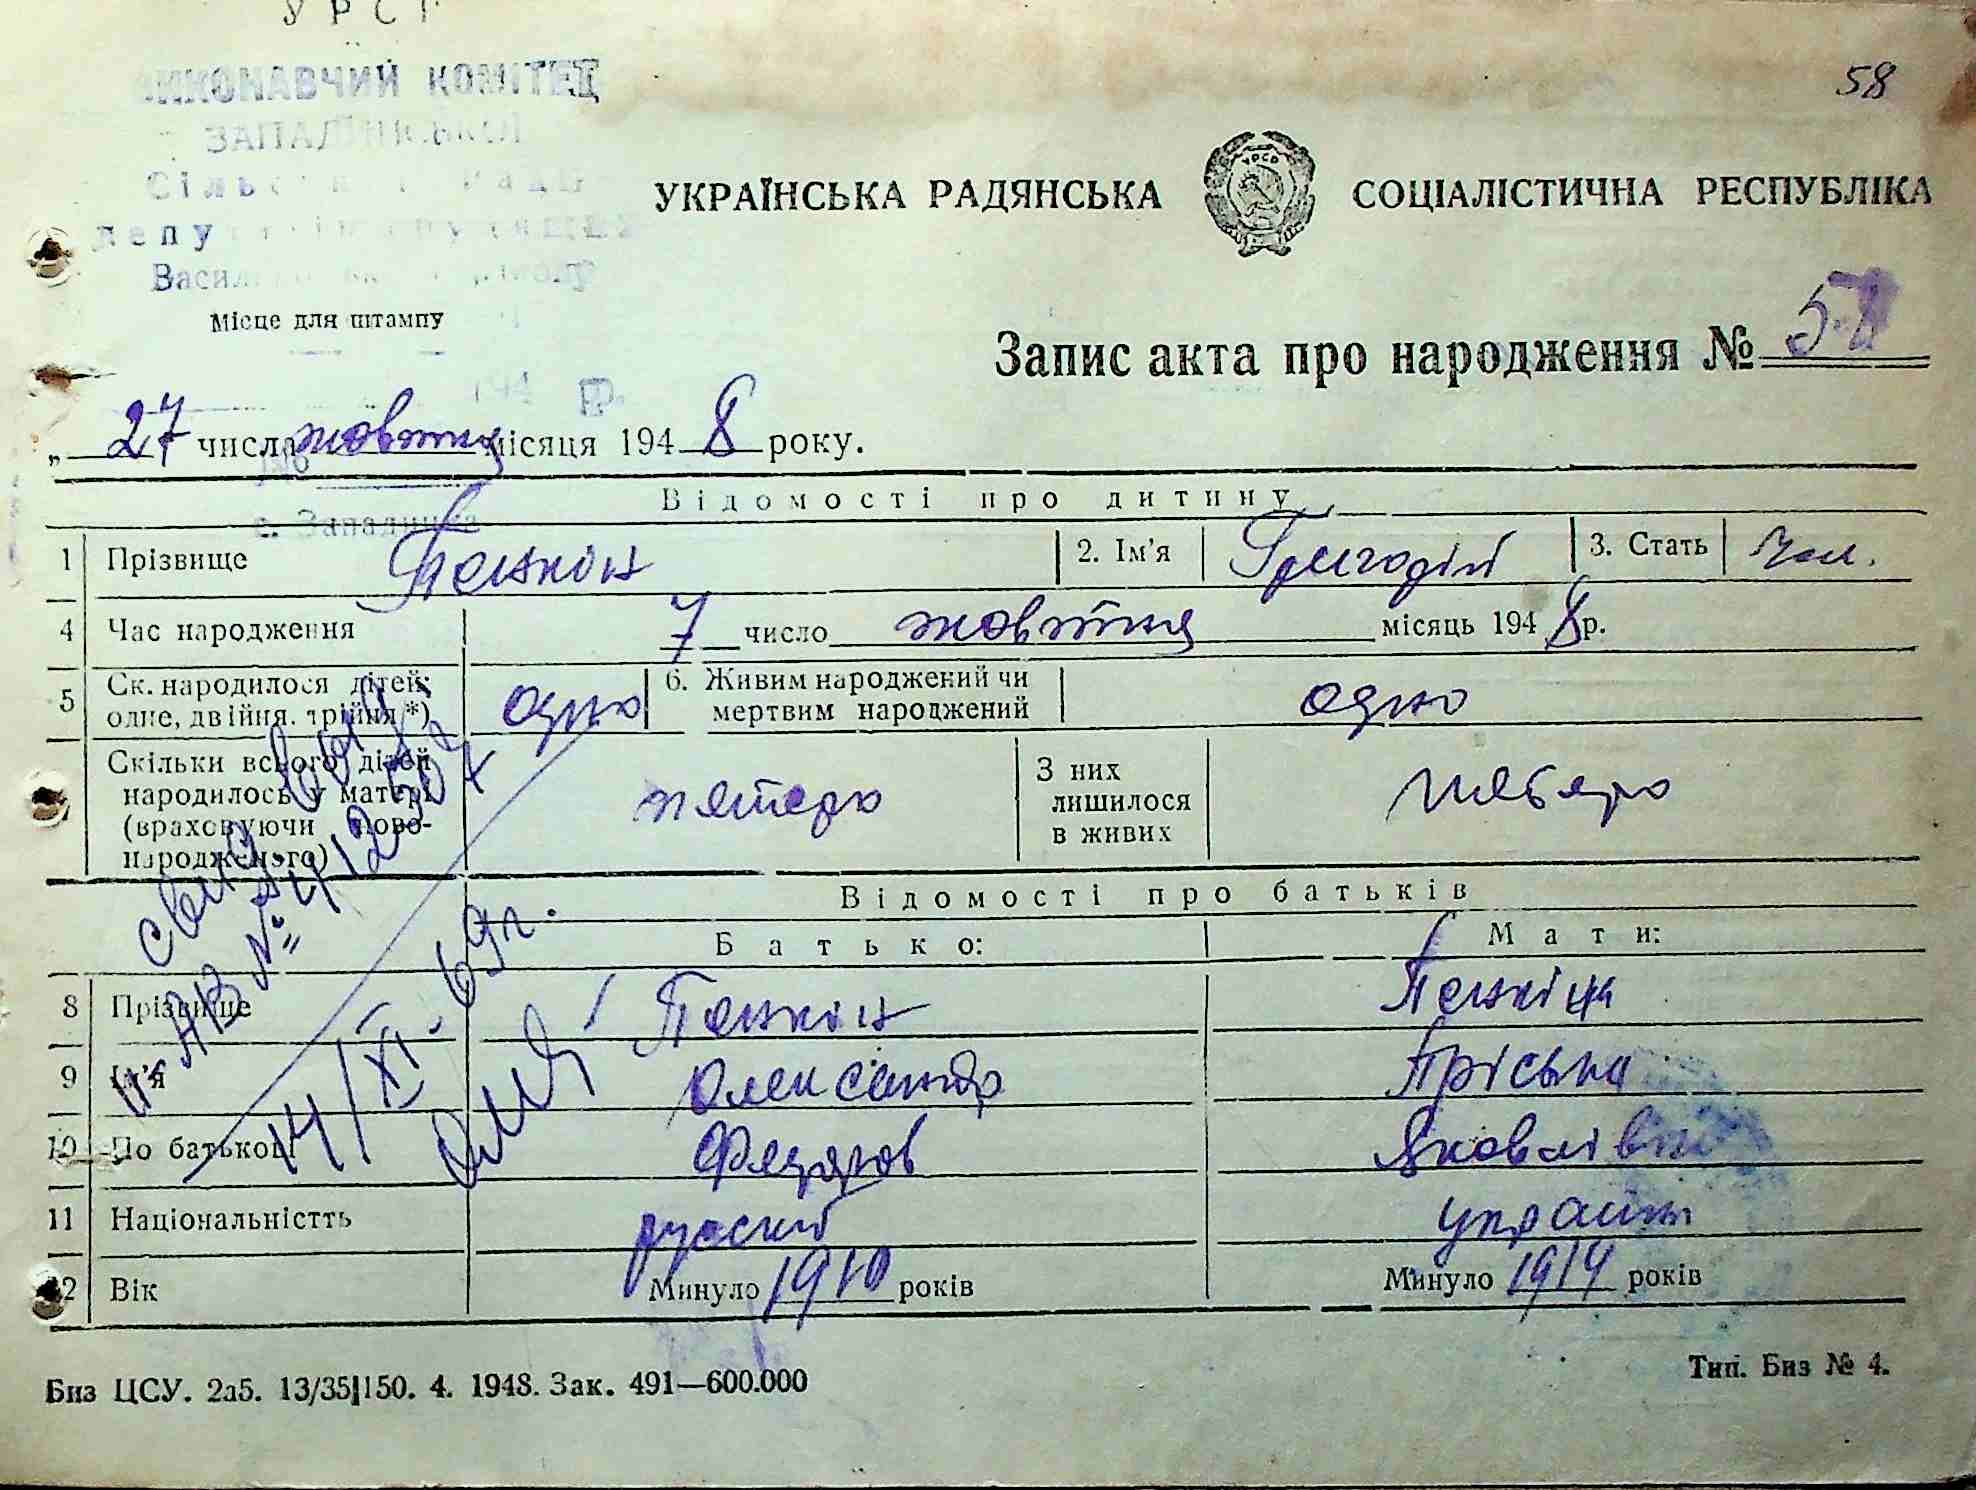 УРСР
ВИКОНАВЧИЙ КОМІТЕТ
ЗАПАДИНСЬКОЇ
Сільської Ради
депутатів трудящих
Васильківського району
58
УКРАЇНСЬКА РАДЯНСЬКА СОЦІАЛІСТИЧНА РЕСПУБЛІКА
УРСР
Місце для штампу
Запис акта про народження № 58
194 р.
„ 27 числа жовтня місяця 1948 року.
№
Відомості про дитину
с. Западинка
1 Прізвище Пенкін 2. Ім'я Григорій 3. Стать чол.
4 Час народження 7 число жовтня місяць 1948 р.
5 Ск. народилося дітей: одно 6. Живим народжений чи одно
одне, двійня, трійня *) мертвим народжений
Скільки всього дітей З них
народилось у матері пятеро лишилося пятеро
(враховуючи ново- в живих
народженого)
Відомості про батьків
Батько: Мати:
8 Прізвище Пенкін Пенкіна
9 Ім'я Олександр Пріська
10 По батькові Федоров Яковлівна
11 Національністть руский україн
12 Вік Минуло 1910 років Минуло 1914 років
14/XI. 69 г.
Биз ЦСУ. 2а5. 13/35|150. 4. 1948. Зак. 491—600.000 Тип. Биз № 4.